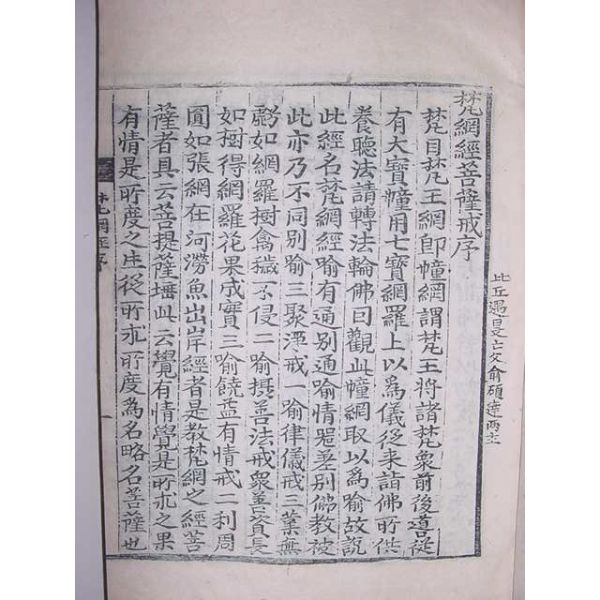 梵網經菩薩戒序
梵目梵王網即幢網謂梵王將諸梵衆前後導從
有大寶幢用七寶網羅上以爲儀從来詣佛所供
養聽法請轉法輪佛曰觀此幢網取以爲喻故說
此經名梵網經喻有通別通喻情器差別佛教被
此亦乃不同別喻三聚淨戒一喻律儀戒三業無
虧如網羅樹禽穢不侵二喻攝善法戒衆善資長
如樹得網羅花果成寶三喻饒益有情戒二利周
圓如張網在河澇魚出岸經者是教梵網之經菩
薩者具云菩提薩埵此云覺有情覺是所求之果
有情是所度之生從所求所度為名略名菩薩也
梵網經序
一
比丘遇是亡父俞碩達两主